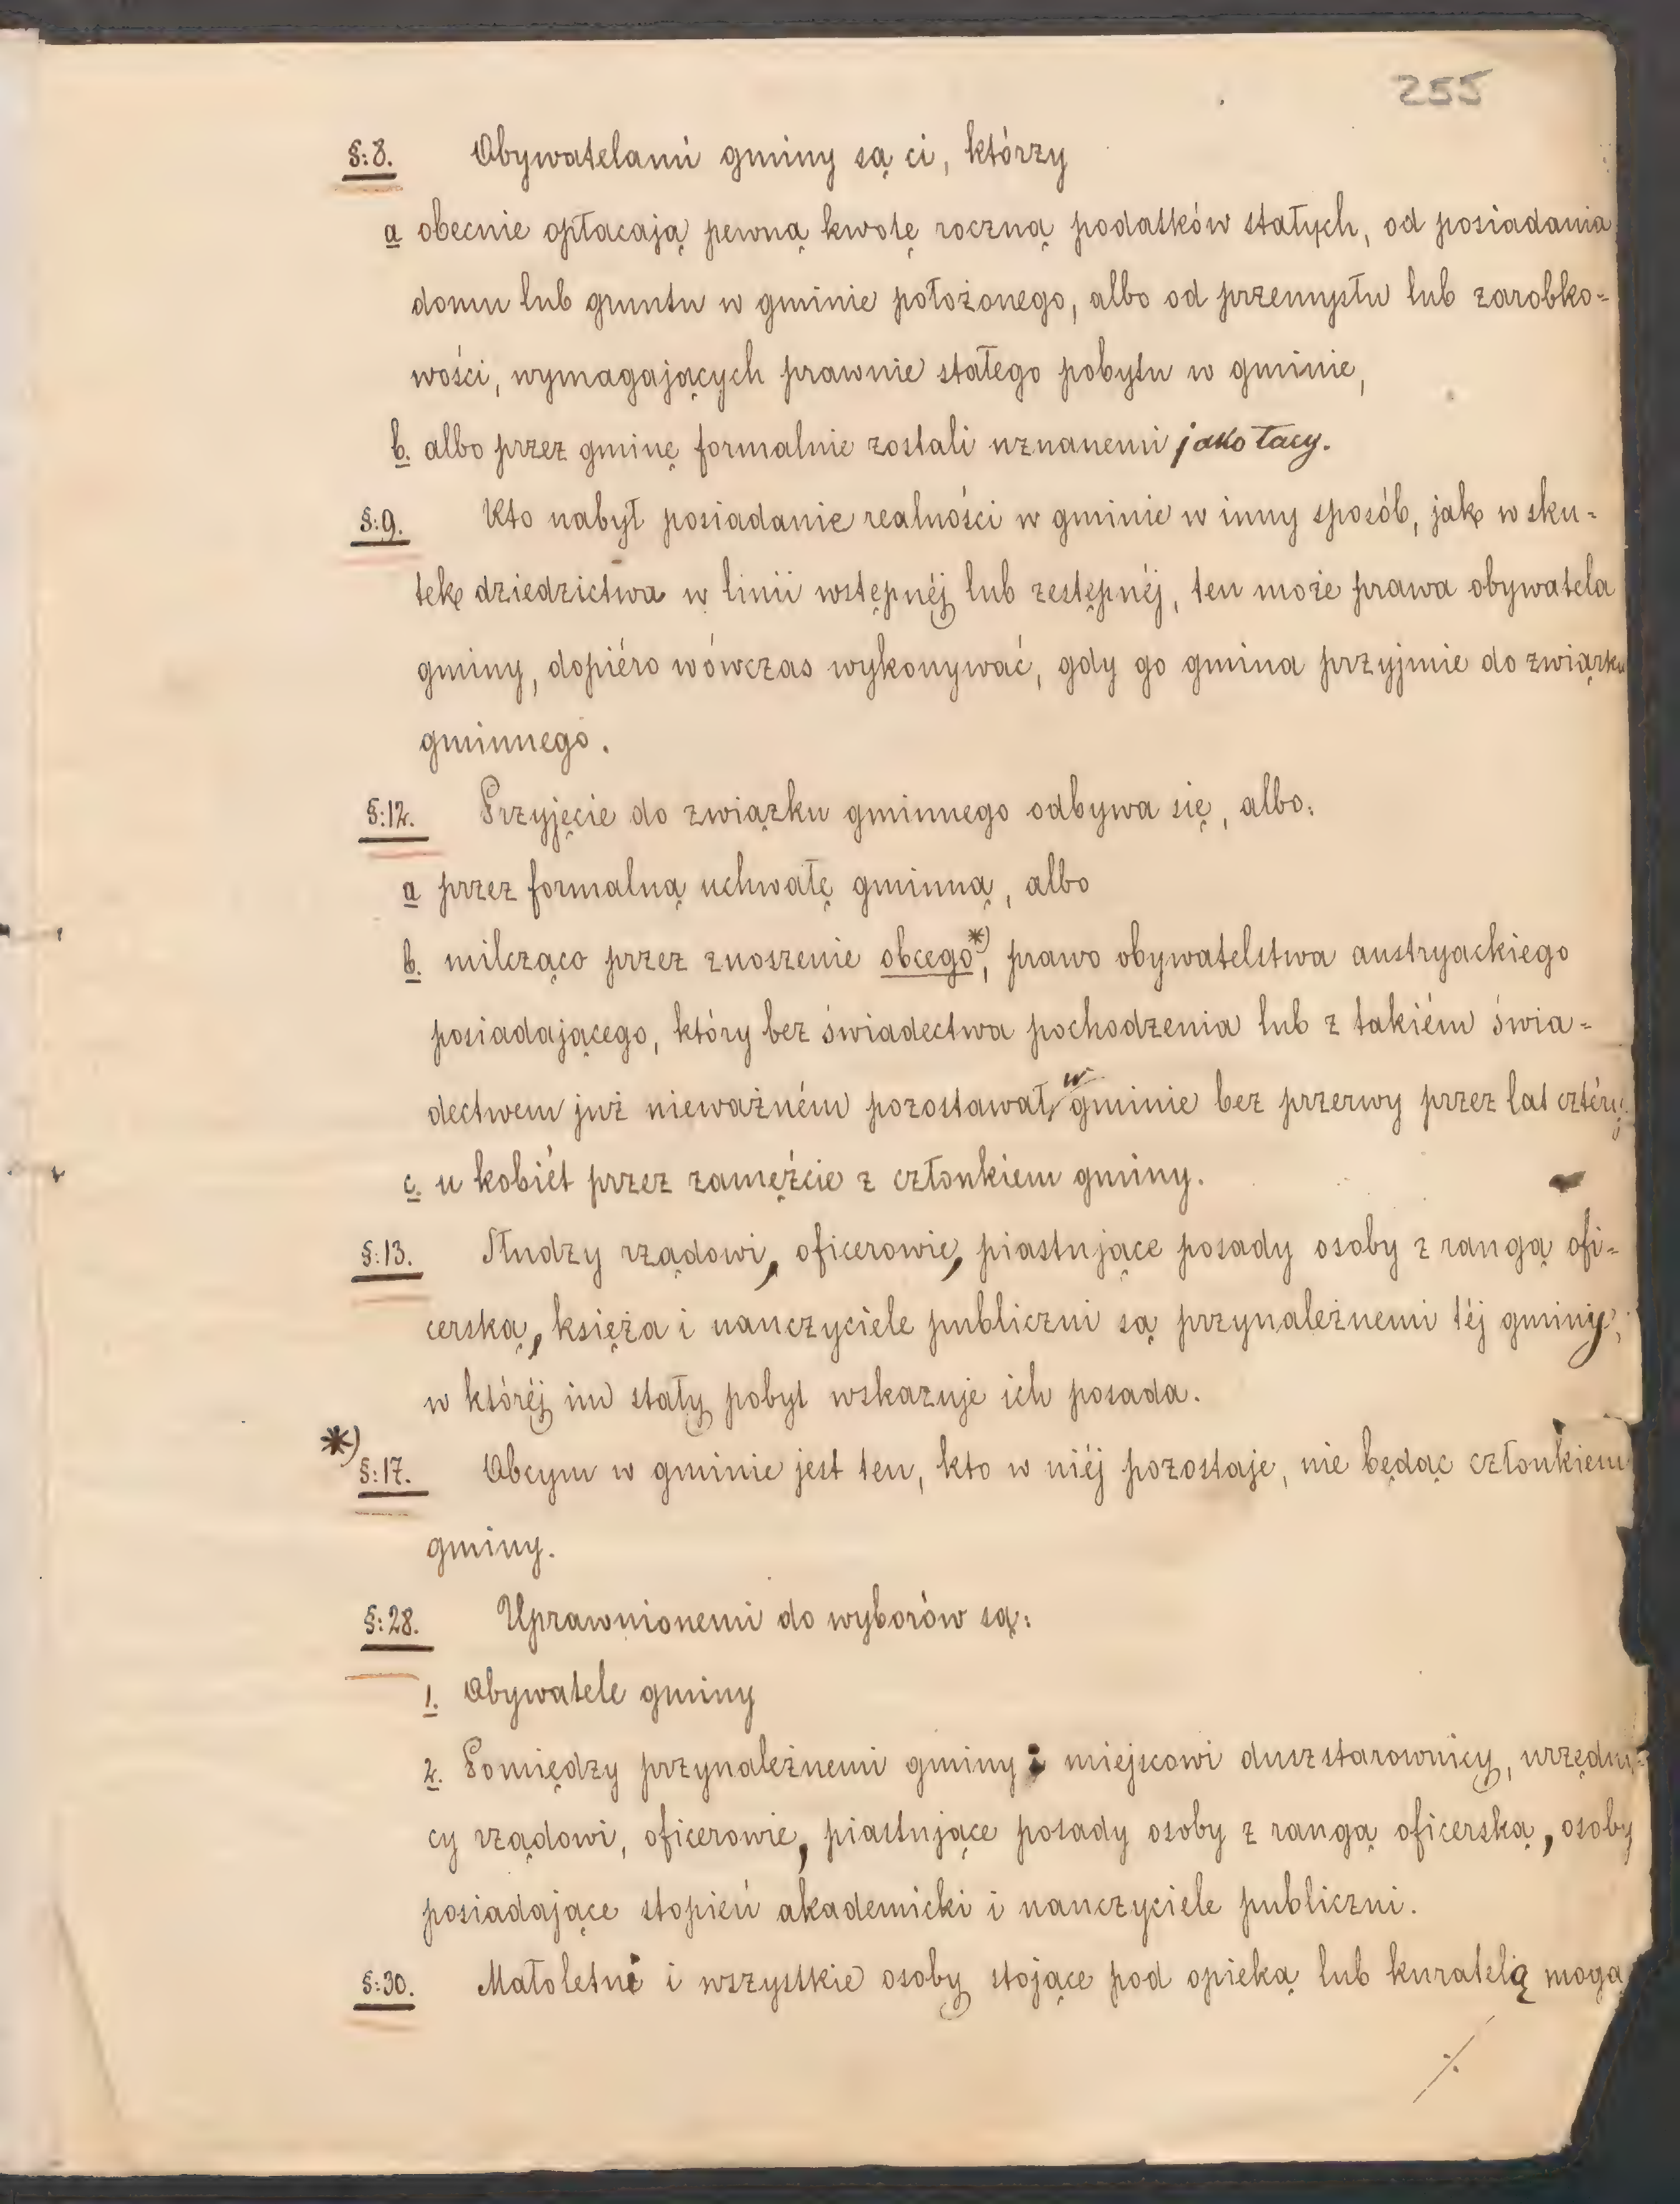 255
§:8. Obywatelami gminy są ci, którzy
a obecnie opłacają pewną kwotę roczną podatków stałych, od posiadania
domu lub gruntu w gminie położonego, albo od przemysłu lub zarobko=
wości, wymagających prawnie stałego pobytu w gminie,
b. albo przez gminę formalnie zostali uznanemi jako tacy.
§:9. Kto nabył posiadanie realności w gminie w inny sposób, jak w sku=
tek dziedzictwa w linii wstępnéj lub zestępnéj, ten może prawa obywatela
gminy, dopiéro wówczas wykonywać, gdy go gmina przyjmie do związku
gminnego.
§:12. Przyjęcie do związku gminnego odbywa się, albo:
a przez formalną uchwałę gminną, albo
b. milcząco przez znoszenie obcego*), prawo obywatelstwa austryackiego
posiadającego, który bez świadectwa pochodzenia lub z takiém świa=
dectwem już nieważném pozostawał w gminie bez przerwy przez lat cztéry;
c. u kobiét przez zamężcie z członkiem gminy.
§:13. Słudzy rządowi, oficerowie, piastujące posady osoby z rangą ofi=
cerską, księża i nauczyciele publiczni są przynależnemi téj gminy,
w któréj im stały pobyt wskazuje ich posada.
*) §:17. Obcym w gminie jest ten, kto w niéj pozostaje, nie będąc członkiem
gminy.
§:28. Uprawnionemi do wyborów są:
1. Obywatele gminy
2. Pomiędzy przynależnemi gminy: miejscowi duszstarownicy, urzędni=
cy rządowi, oficerowie, piastujące posady osoby z rangą oficerską, osoby
posiadające stopień akademicki i nauczyciele publiczni.
§:30. Małoletni i wszystkie osoby stojące pod opieką lub kuratelą mogą
./.